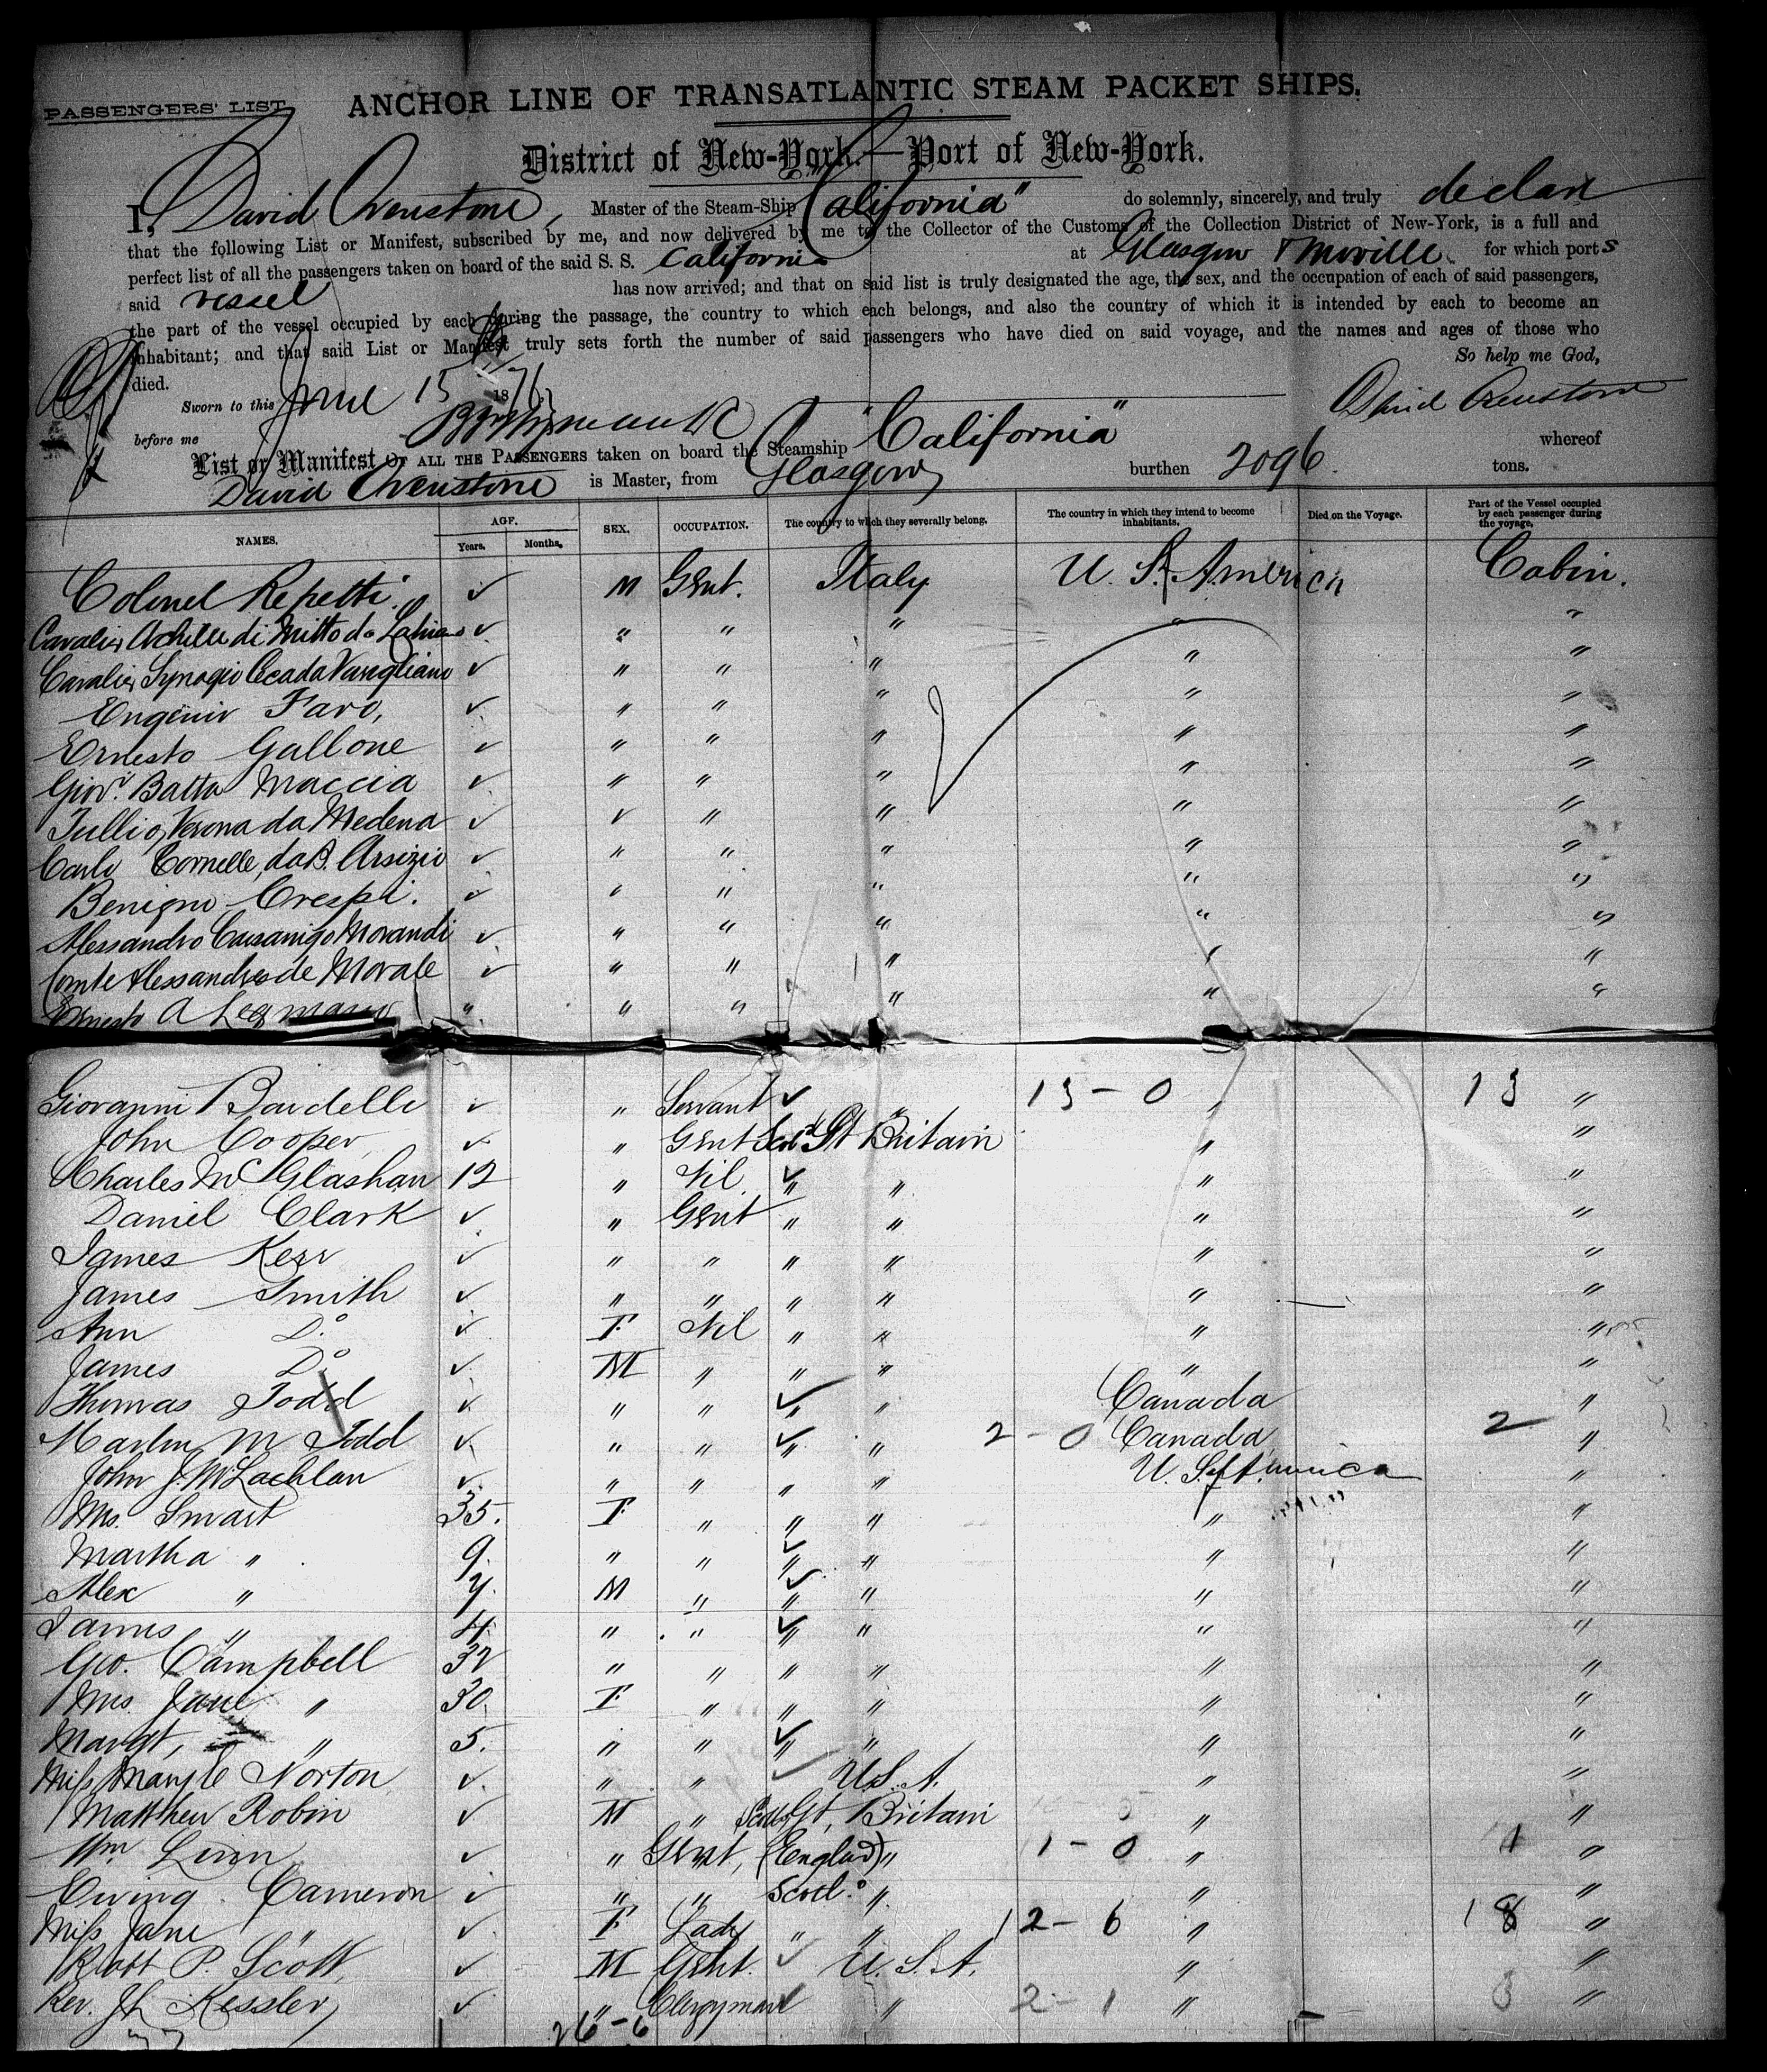 PASSENGERS' LIST
ANCHOR LINE OF TRANSATLANTIC STEAM PACKET SHIPS.
District of New-York.—Port of New-York.
I, David Ovenstone, Master of the Steam-Ship "California" do solemnly, sincerely, and truly declare
that the following List or Manifest, subscribed by me, and now delivered by me to the Collector of the Customs of the Collection District of New-York, is a full and
perfect list of all the passengers taken on board of the said S. S. California at Glasgow & Moville for which ports
said vessel has now arrived; and that on said list is truly designated the age, the sex, and the occupation of each of said passengers,
the part of the vessel occupied by each during the passage, the country to which each belongs, and also the country of which it is intended by each to become an
inhabitant; and that said List or Manifest truly sets forth the number of said passengers who have died on said voyage, and the names and ages of those who
died. So help me God,
Sworn to this June 15 1876 David Ovenstone
before me
List or Manifest OF ALL THE PASSENGERS taken on board the Steamship "California" whereof
David Ovenstone is Master, from Glasgow, burthen 2096 tons.
NAMES. AGE. Years. Months. SEX. OCCUPATION. The country to which they severally belong. The country in which they intend to become inhabitants. Died on the Voyage. Part of the Vessel occupied by each passenger during the voyage.
Colonel Repetti. ✓ M Gent. Italy U. S. of America Cabin.
Cavalier Achille di Mitto da ✓ " " " "
Cavalier ✓ " " " " "
Eugenio Faro, ✓ " " " " "
Ernesto Gallone ✓ " " " " "
Giov. Batta Maccia ✓ " " " " "
Tullio, Verona da Medena ✓ ✓ " " " "
Carlo Cornelle, da B. Arsizio ✓ " " " " "
Benigno Crespi. ✓ " " " " "
Alessandro Casanigo Morandi ✓ " " " " "
Comte Alessandro de Morale ✓ " " " " "
Ernesto A " " " " " "
Giovanni Bardelli ✓ " Servant ✓ " 13 - 0 " 13 "
John Cooper, ✓ " Gent Scotd Gt Britain " "
Charles McGlashan 12 " Nil " " " "
Daniel Clark ✓ " Gent " " " "
James Kerr ✓ " " " " " "
James Smith ✓ " " " " " "
Ann Do. ✓ F Nil " " " "
James Do ✓ M " " " " "
Thomas Todd ✓ " " " " Canada "
Martin M Todd ✓ " " " " 2 - 0 Canada 2 "
John J. McLachlan ✓ " " " " U. S. of America "
Mrs. Smart 35. F " " " " "
Martha " 9. " " " " " "
Alex " 7. M " " " " "
James " 4. " " " " " "
Geo. Campbell 32 " " " " " "
Mrs. Jane " 30. F " " " " "
Margt, " 5. " " " " " "
Miss Norton ✓ " " U.S.A. " "
Matthew Robin ✓ M " Scotl Gt, Britain " "
Wm. Linn ✓ " Gent, (Englad) " 1 - 0 " 1 "
Ewing Cameron ✓ " " Scotl. " " "
Miss Jane " ✓ F Lady " " 12 - 6 " 18 "
Robt P. Scott, ✓ M Gent. ✓ U. S. A. " "
Rev. J L Kessler, ✓ " Clergyman " 2 - 1 " 3 "
26-6